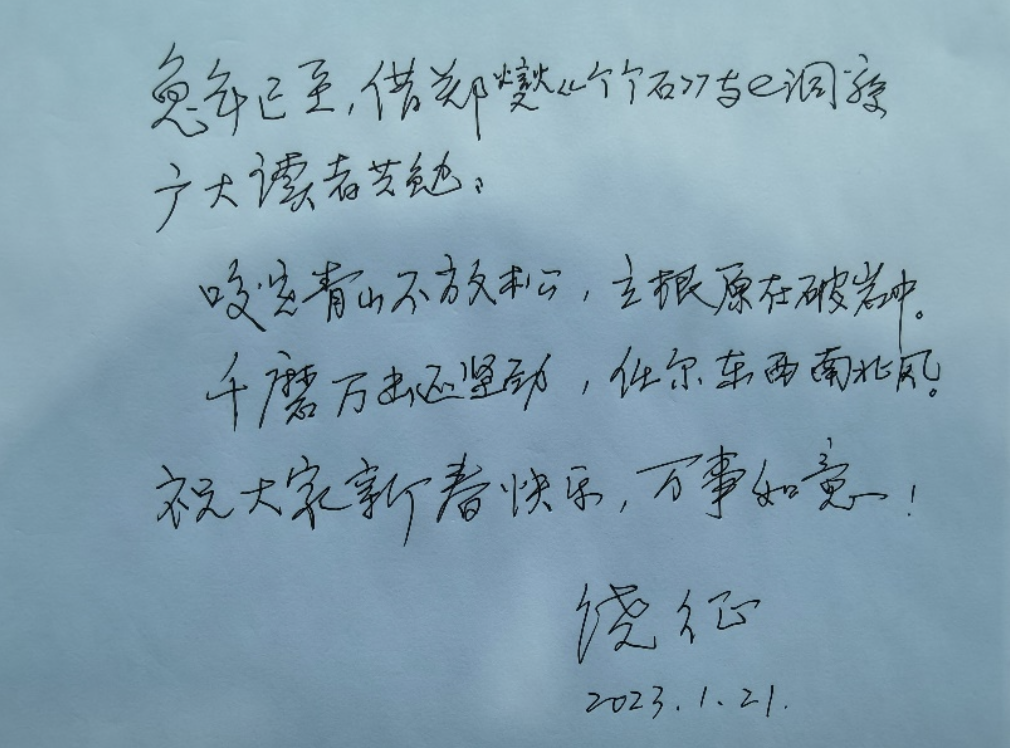 兔年已至,借郑燮《竹石》与e洞察
广大读者共勉:
咬定青山不放松,立根原在破岩中。
千磨万击还坚劲,任尔东西南北风。
祝大家新春快乐,万事如意!
饶征
2023.1.21.